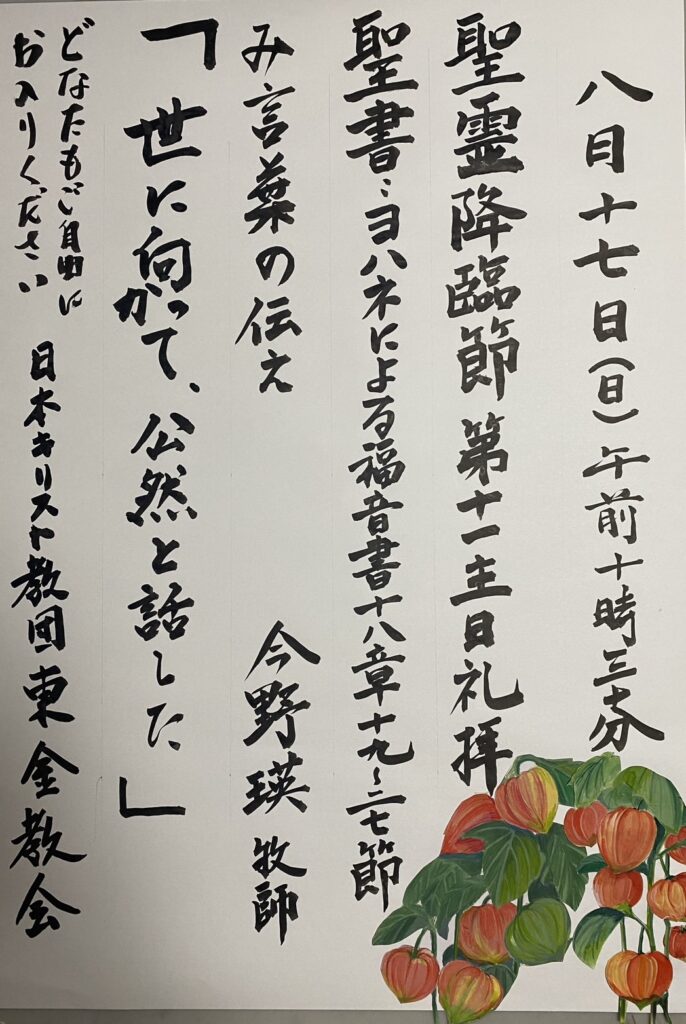 八日十七日(日)午前十時三十分
聖霊降臨節 第十一主日礼拝
聖書:ヨハネによる福音書十八章十九~二七節
み言葉の伝え 今野瑛 牧師
「世に向かって、公然と話した。」
どなたもご自由に
お入りください
日本キリスト教団東金教会